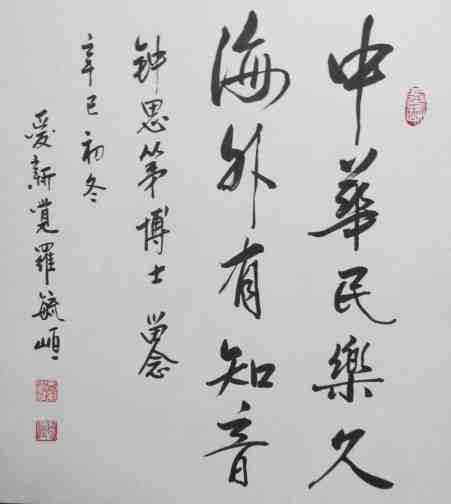 中華民樂久
海外有知音
钟思第博士 留念
辛巳初冬
愛新覺羅毓峘